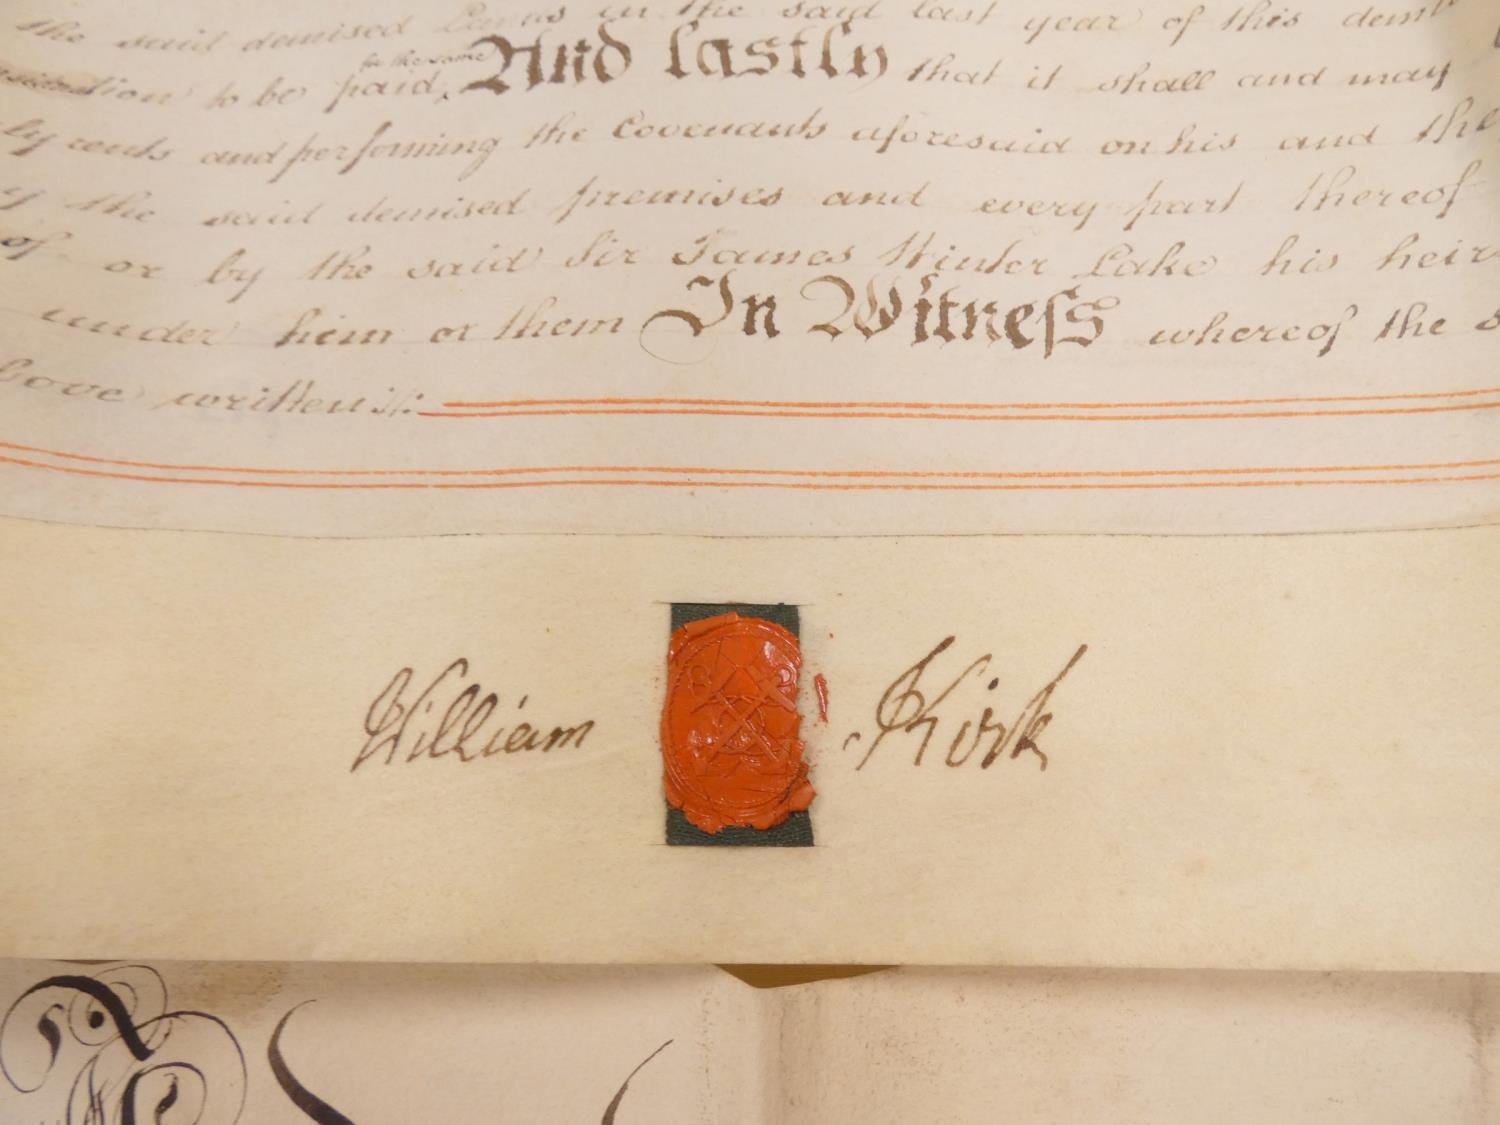 the said demised Lands in the said last year of this
to be paid for the same And lastly that it shall and may
rents and performing the Covenants aforesaid on his and the
the said demised premises and every part thereof
of or by the said Sir James Winter Lake his heirs
under him or them In Witness whereof the
written
William Kirk